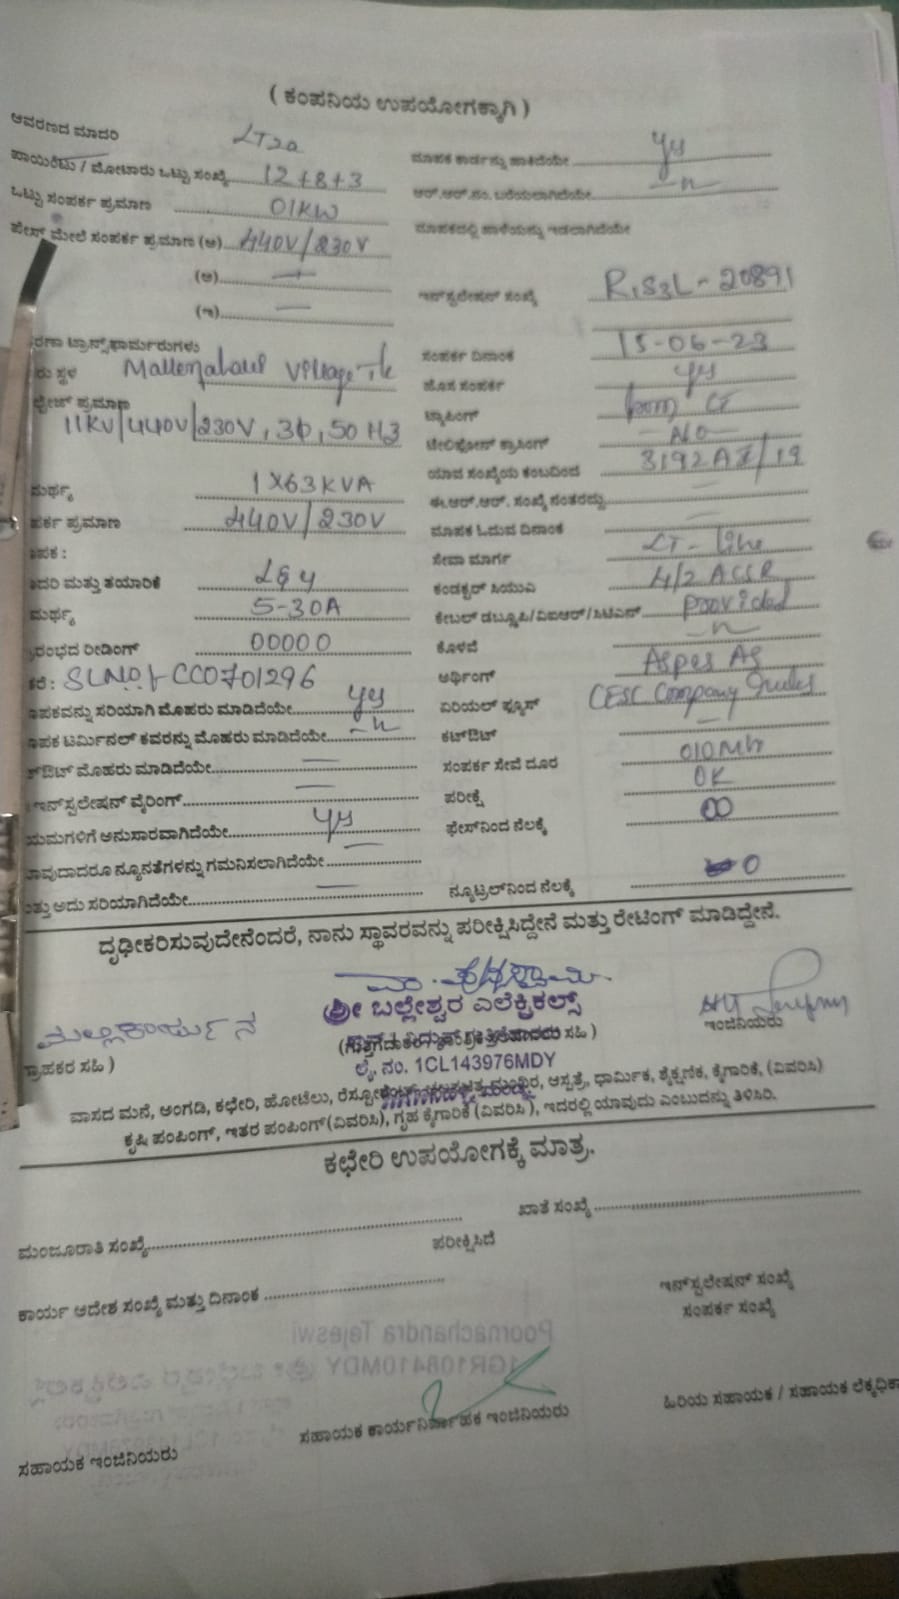 ( ಕಂಪನಿಯ ಉಪಯೋಗಕ್ಕಾಗಿ )
ಆವರಣದ ಮಾದರಿ LT2a
ಪಾಯಿಂಟು / ಮೋಟಾರು ಒಟ್ಟು ಸಂಖ್ಯೆ 12+8+3
ಒಟ್ಟು ಸಂಪರ್ಕ ಪ್ರಮಾಣ 01KW
ಫೇಸ್ ಮೇಲೆ ಸಂಪರ್ಕ ಪ್ರಮಾಣ (ಅ) 440V/230V
(ಆ) —
(ಇ) —
ರಣಾ ಟ್ರಾನ್ಸ್‌ಫಾರ್ಮರುಗಳು
ರು ಸ್ಥಳ Village
ಪ್ರಮಾಣ
11KV/440V/230V, 3Φ, 50 HZ
ಮರ್ಥ್ಯ 1X63KVA
ಪರ್ಕ ಪ್ರಮಾಣ 440V/230V
ಾಪಕ :
ಾದರಿ ಮತ್ತು ತಯಾರಿಕೆ L&
ಮರ್ಥ್ಯ 5-30A
ರಂಭದ ರೀಡಿಂಗ್ 00000
ಕರೆ : SLNO:- CC0701296
ಾಪಕವನ್ನು ಸರಿಯಾಗಿ ಮೊಹರು ಮಾಡಿದೆಯೇ yes
ಾಪಕ ಟರ್ಮಿನಲ್ ಕವರನ್ನು ಮೊಹರು ಮಾಡಿದೆಯೇ –n–
ಮೊಹರು ಮಾಡಿದೆಯೇ —
ಇನ್‌ಸ್ಟಲೇಷನ್ ವೈರಿಂಗ್ —
ಯಮಗಳಿಗೆ ಅನುಸಾರವಾಗಿದೆಯೇ yes
ಾವುದಾದರೂ ನ್ಯೂನತೆಗಳನ್ನು ಗಮನಿಸಲಾಗಿದೆಯೇ —
ತ್ತು ಅದು ಸರಿಯಾಗಿದೆಯೇ —
ಮಾಪಕ ಕಾರ್ಡನ್ನು ಹಾಕಿದೆಯೇ yes
ಆರ್.ಆರ್.ನಂ. ಬರೆಯಲಾಗಿದೆಯೇ –n–
ಮಾಪಕದಲ್ಲಿ ಹಾಳೆಯನ್ನು ಇಡಲಾಗಿದೆಯೇ
ಇನ್‌ಸ್ಟಲೇಷನ್ ಸಂಖ್ಯೆ 20891
ಸಂಪರ್ಕ ದಿನಾಂಕ 15-06-23
ಹೊಸ ಸಂಪರ್ಕ yes
ಟ್ಯಾಪಿಂಗ್ from LT
ಟೆಲಿಫೋನ್ ಕ್ರಾಸಿಂಗ್ –NO–
ಯಾವ ಸಂಖ್ಯೆಯ ಕಂಬದಿಂದ
ಈ.ಆರ್.ಆರ್. ಸಂಖ್ಯೆ ನಂತರದ್ದು —
ಮಾಪಕ ಓದುವ ದಿನಾಂಕ —
ಸೇವಾ ಮಾರ್ಗ LT - line
ಕಂಡಕ್ಟರ್ ಸಿಯುವಿ
ಕೇಬಲ್ ಡಬ್ಲ್ಯೂಪಿ/ವಿಐಆರ್/ಸಿಟಿಎಸ್ provided
ಕೊಳವೆ –n–
ಅರ್ಥಿಂಗ್
ಏರಿಯಲ್ ಫ್ಯೂಸ್ CESC Company
ಕಟ್‌ಔಟ್ —
ಸಂಪರ್ಕ ಸೇವೆ ದೂರ 010
ಪರೀಕ್ಷೆ OK
ಫೇಸ್‌ನಿಂದ ನೆಲಕ್ಕೆ
ನ್ಯೂಟ್ರಲ್‌ನಿಂದ ನೆಲಕ್ಕೆ 0
ದೃಢೀಕರಿಸುವುದೇನೆಂದರೆ, ನಾನು ಸ್ಥಾವರವನ್ನು ಪರೀಕ್ಷಿಸಿದ್ದೇನೆ ಮತ್ತು ರೇಟಿಂಗ್ ಮಾಡಿದ್ದೇನೆ.
ಮಲ್ಲಿಕಾರ್ಜುನ
ಶ್ರೀ ಬಲ್ಲೇಶ್ವರ ಎಲೆಕ್ಟ್ರಿಕಲ್ಸ್
ಇಂಜಿನಿಯರು
ಗ್ರಾಹಕರ ಸಹಿ )
ಸಹಿ )
ಲೈ. ನಂ. 1CL143976MDY
ವಾಸದ ಮನೆ, ಅಂಗಡಿ, ಕಛೇರಿ, ಹೋಟೆಲು, ಆಸ್ಪತ್ರೆ, ಧಾರ್ಮಿಕ, ಶೈಕ್ಷಣಿಕ, ಕೈಗಾರಿಕೆ, (ವಿವರಿಸಿ)
ಕೃಷಿ ಪಂಪಿಂಗ್, ಇತರ ಪಂಪಿಂಗ್ (ವಿವರಿಸಿ), ಗೃಹ ಕೈಗಾರಿಕೆ (ವಿವರಿಸಿ), ಇದರಲ್ಲಿ ಯಾವುದು ಎಂಬುದನ್ನು ತಿಳಿಸಿರಿ.
ಕಛೇರಿ ಉಪಯೋಗಕ್ಕೆ ಮಾತ್ರ.
ಮಂಜೂರಾತಿ ಸಂಖ್ಯೆ
ಖಾತೆ ಸಂಖ್ಯೆ
ಪರೀಕ್ಷಿಸಿದೆ
ಕಾರ್ಯ ಆದೇಶ ಸಂಖ್ಯೆ ಮತ್ತು ದಿನಾಂಕ
ಇನ್‌ಸ್ಟಲೇಷನ್ ಸಂಖ್ಯೆ
ಸಂಪರ್ಕ ಸಂಖ್ಯೆ
ಸಹಾಯಕ ಇಂಜಿನಿಯರು
ಸಹಾಯಕ ಕಾರ್ಯನಿರ್ವಾಹಕ ಇಂಜಿನಿಯರು
ಹಿರಿಯ ಸಹಾಯಕ / ಸಹಾಯಕ ಲೆಕ್ಕಧಿಕಾ